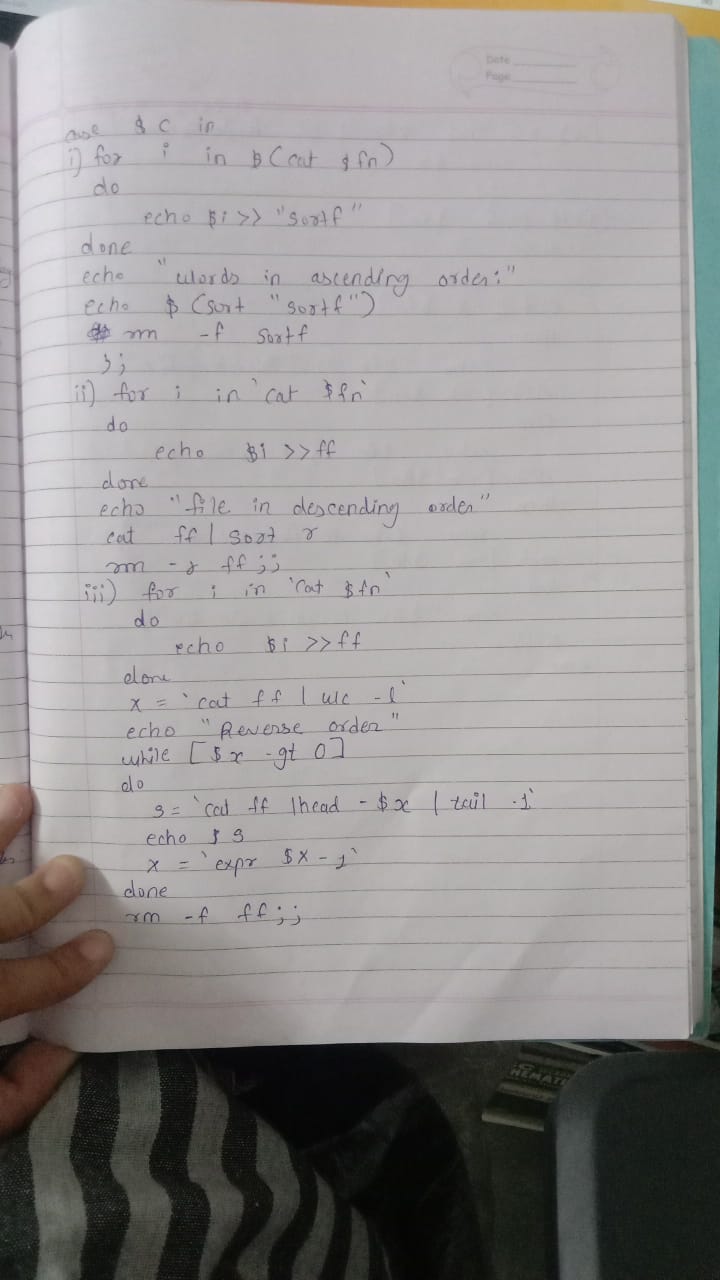 Date
Page
case $ c in
i) for i in $ (cat $ fn)
do
echo $i >> "sortf"
done
echo "words in ascending order:"
echo $ (sort "sortf")
rm -f sortf
;;
ii) for i in `cat $fn`
do
echo $i >>ff
done
echo "file in descending order"
cat ff | sort r
rm -r ff ;;
iii) for i in `cat $fn`
do
echo $i >>ff
done
x = `cat ff | wc -l`
echo "Reverse order"
while [$x -gt 0]
do
s = `cat ff |head - $x | tail -1`
echo $ s
x = `expr $x - 1`
done
rm -f ff ;;